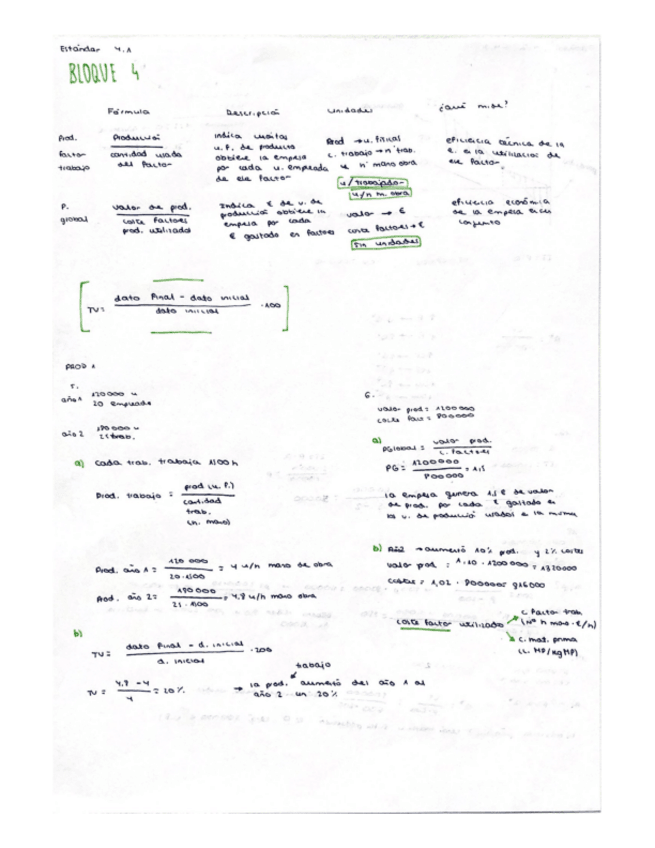 Estándar 4.1
BLOQUE 4
Fórmula Descripción Unidades ¿Qué mide?
Prod. factor trabajo
Producción
cantidad usada del factor
Indica cuántas
u. F. de producto
obtiene la empresa
por cada u. empleada
de ese factor
Prod → u. físicas
c. trabajo → nº trab.
u nº mano obra
u/trabajador
u/h m. obra
eficiencia técnica de la
e. en la utilización de
ese factor
P. global
valor de prod.
coste factores
prod. utilizados
Indica € de v. de
producción obtiene la
empresa por cada
€ gastado en factores
valor → €
coste factores → €
sin unidades
eficiencia económica
de la empresa en su
conjunto
TV = dato final - dato inicial / dato inicial · 100
PROD 1
5.
año 1 120000 u
20 empleados
año 2 180000 u
25 trab.
a) Cada trab. trabaja 1500 h
Prod. trabajo = prod (u. F.) / cantidad trab. (h. mano)
Prod. año 1 = 120 000 / 20 · 1500 = 4 u/h mano de obra
Prod. año 2 = 180 000 / 25 · 1500 = 4,8 u/h mano obra
b)
TV = dato final - d. inicial / d. inicial · 100
TV = 4,8 - 4 / 4 = 20%
trabajo
→ la prod. aumentó del año 1 al
año 2 un 20%
6.
valor prod = 1200 000
costes fact = 800000
a)
PGlobal = valor prod. / c. factores
PG = 1200000 / 800 000 = 1,5
la empresa genera 1,5 € de valor
de prod. por cada € gastado en
los
b) Año 2 → aumentó 10% prod. y 2% costes
valor prod = 1.10 · 1200 000 = 1320000
costes = 1,02 · 800000 = 816000
coste factor utilizado
c. factor trab
(nº h mano · €/h)
c. mat. prima